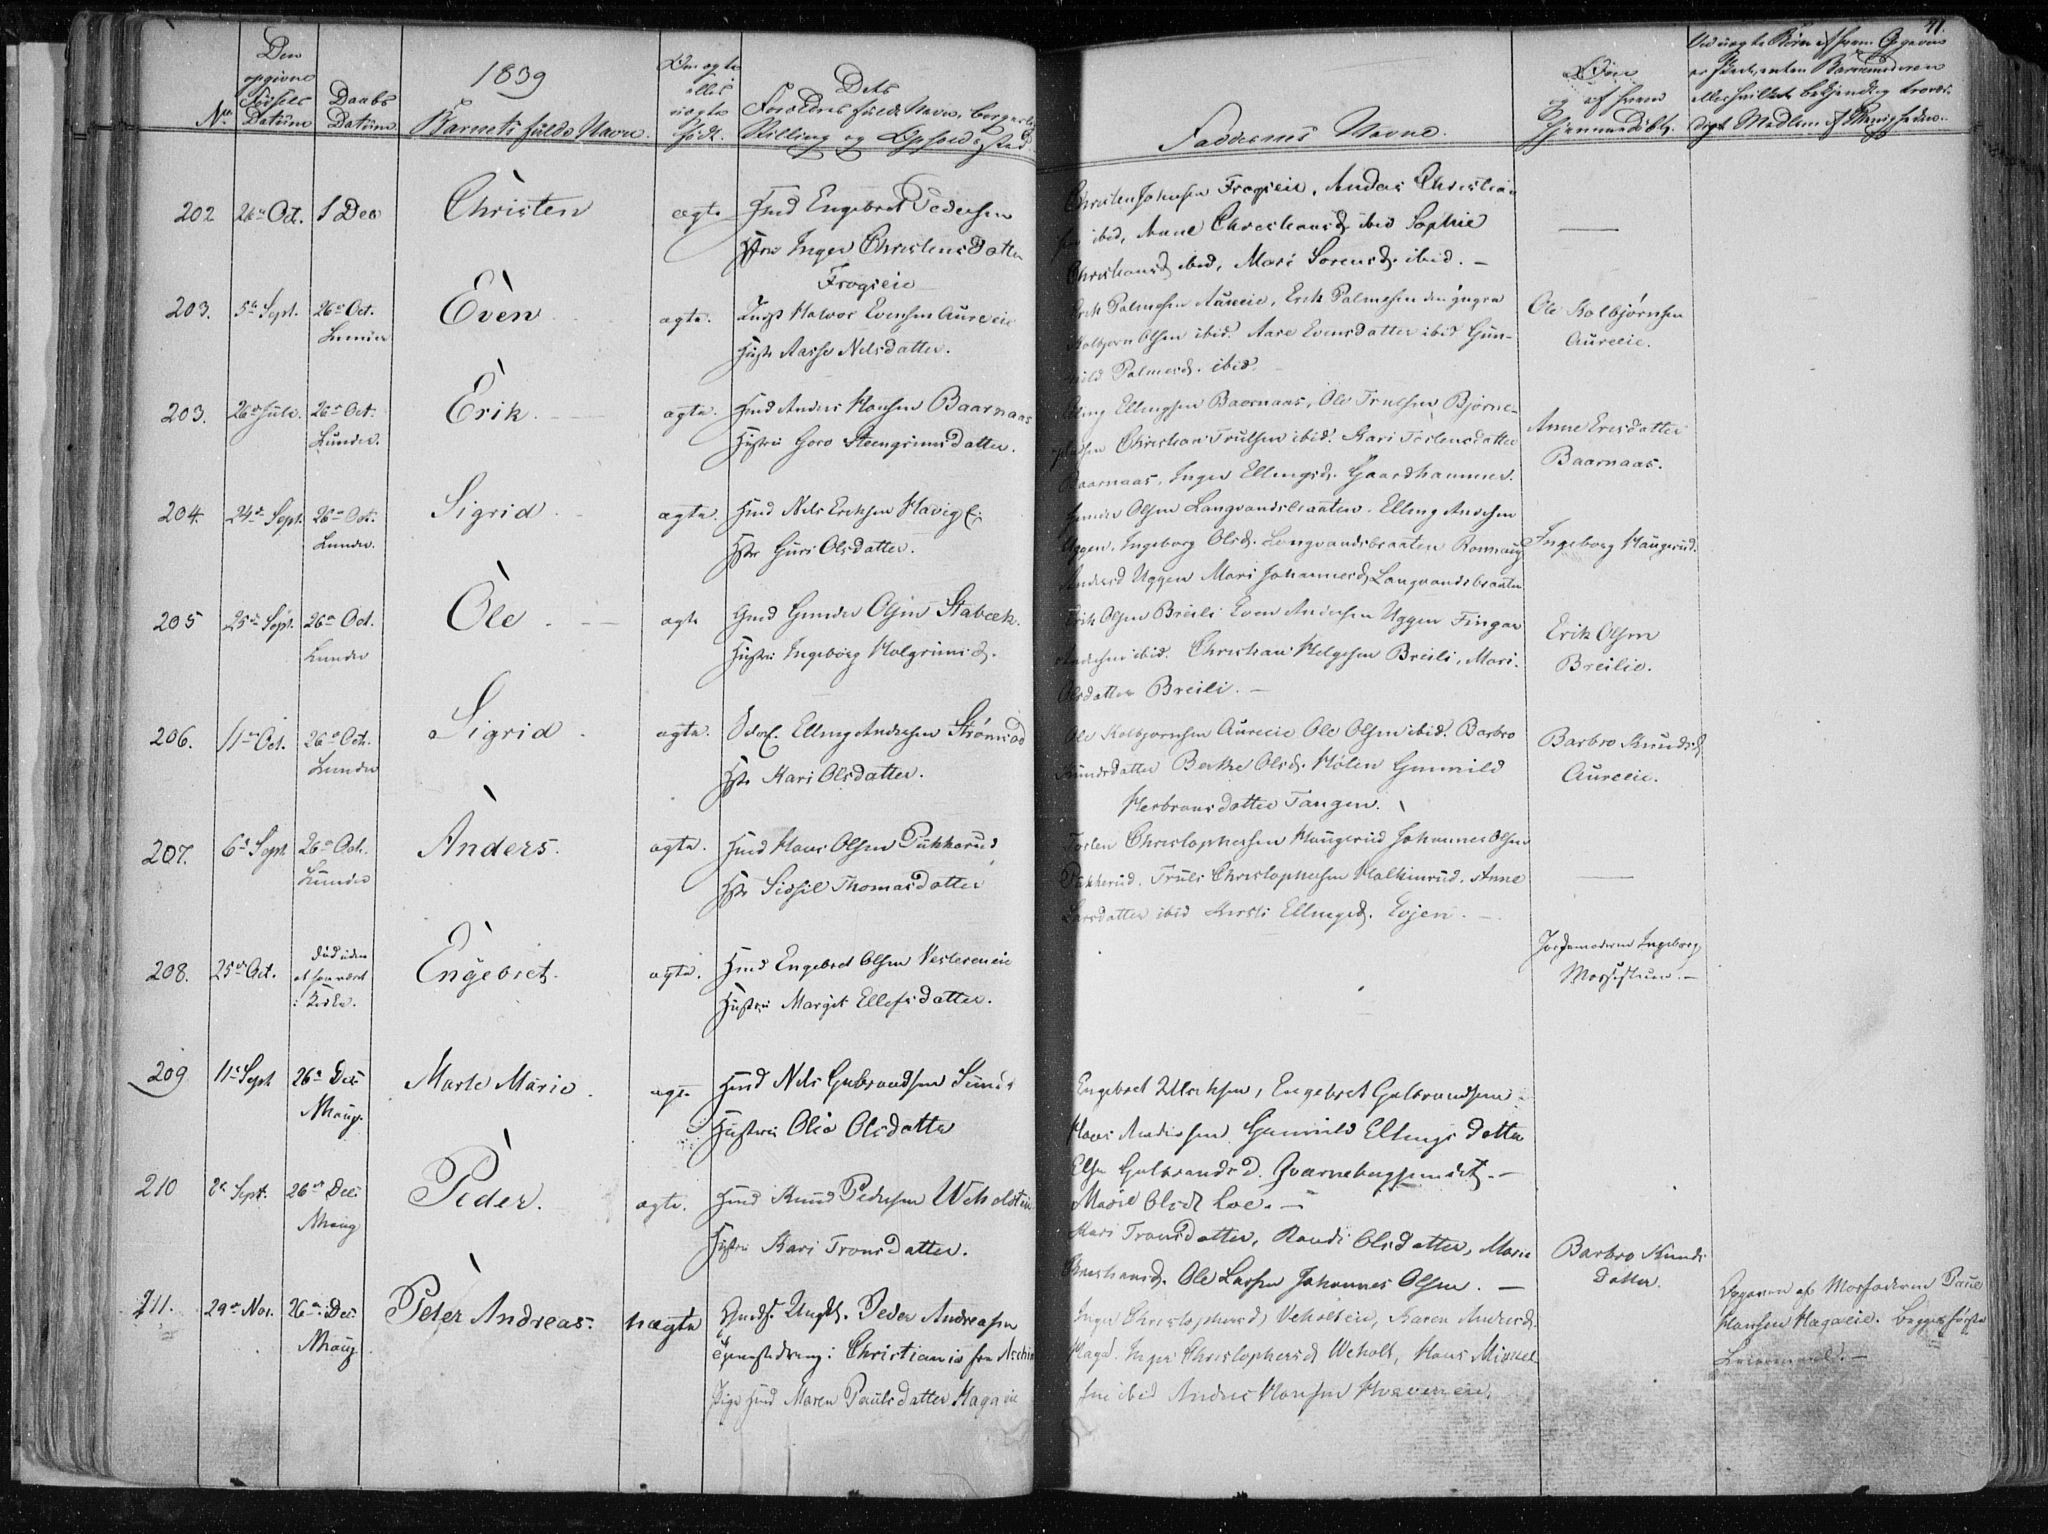 41.
1839
No
Den opgivne Fødsels Datum
Daabs Datum
Barnets fulde Navn.
Om ægte eller uægte født.
Dets Forældres fulde Navn, borgerlig Stilling og Opholdssted
Faddernes Navne.
Om og af hvem hjemmedøbt.
Ved uægte Børn af hvem Opgaven er skeet, enten Barnemoderen eller hvilket bekjendtg
202 26de Oct. 1 Dec Christen ægte Hmd Engebret Pedersen
Hstr Inger Christensdatter
Frogseie
Christen Johnsen Frogseie, Andas Christian
sen ibid, Anne Christiansd. ibid Sophie
Christiansd ibid, Mari Sorensd. ibid. —
203. 5te Sept. 26de Oct. Lunder Even ægte. Halvor Evensen Aureeie
Hustr Aasse Nilsdatter.
Erik Palmesen Aureeie, Erik Palmesen den yngre
Kolbjorn Olsen ibid. Aase Evensdatter ibid Gun-
nild Palmesd. ibid.
Ole Kolbjørnsen
Aureeie.
203. 26de Juli. 26de Oct. Lunder. Erik. ægte. Hmd Anders Hansen Baarnaas
Hustrue Goro Steengrimsdatter.
Elling Ellingsen Baarnaas, Ole Trulsen Bjørne-
Christian Trulsen ibid. Kari Torstensdatter
Baarnaas, Inger Ellingsd. Gaardhammer.
Anne Eresdatter
Baarnaas.
204. 24de Sept. 26de Oct. Lunder. Sigrid ægte. Hmd Nils Eriksen
Hstr Guri Olsdatter.
Gunder Olsen Langvandsbraaten. Elling Andersen
Uggen. Ingeborg Olsd. Langvandsbraaten Ronnaug
Andersd Uggen Mari Johannesd, Langvandsbraaten
Ingeborg Haugerud.
205 25de Sept. 26de Oct. Lunder Ole. ægte Gmd Gunder Olsen Stabæk.
Hustrue Ingeborg Halgrimsd.
Erik Olsen Breili Even Andersen Uggen Fingar
Andersen ibid. Christian Helgesen Breili, Mari.
Olsdatter Breili. —
Erik Olsen
Breilie.
206. 11te Oct. 26de Oct. Lunder Sigrid ægte. Elling Andersen
Hstr Kari Olsdatter.
Ole Kolbjornsen Aureeie Ole Olsen ibid. Barbro
Knudsdatter Berthe Olsd. Hølen Gunnild
Herbransdatter Tangen.
Barbro Knudsd.
Aureeie.
207. 6te Sept 26de Oct. Lunder Anders. ægte. Hmd Hans Olsen Pukkerud
Hstr Sidsel Thomasdatter
Torsten Christophersen Haugerud Johannes Olsen
Pukkerud. Truls Christophersen Halkinrud. Anne
Larsdatter ibid Kirsti Ellingsd. Evjen. —
208. 25de Oct. død uden at have været i Kirke. Engebret. ægte. Hmd Engebret Olsen Vesterneie
Hustrue Margit Ellefsdatter.
Jordemoderen Ingeborg
209 11te Sept 26de Dec Nhaug. Marte Marie. ægte Hmd Nils Gulbrandsen
Hustrue Olia Olsdatter
Engebret Ulriksen, Engebret Gulbrandsen
Hans Madsesen Gunnild Ellingsdatter
Else Gulbrandsd.
Marie Olsd. Loe. —
210 2de Sept. 26de Dec Nhaug Peder. ægte. Hmd Knud Pedersen Wehølstein
Hustr Kari Tronsdatter.
Mari Tronsdatter, Randi Olsdatter, Marie
Christiansd. Ole Larsen Johannes Olsen. —
Barbro Knuds
datter.
211. 29de Nov. 26de Dec Nhaug Peter Andreas. uægte Ungk. Peder Andreasen
i Christiania fra
Pige Hmd Maren Paulsdatter Hagaeie
Inger Christophersd, Veholteie, Karen Andersd.
Hagd. Inger Christophersd Weholt, Hans Mickel
sen ibid Anders Hansen
Opgaven af Morfaderen Paul
Hansen Hagaeie. Begges første
Leiermaal. —